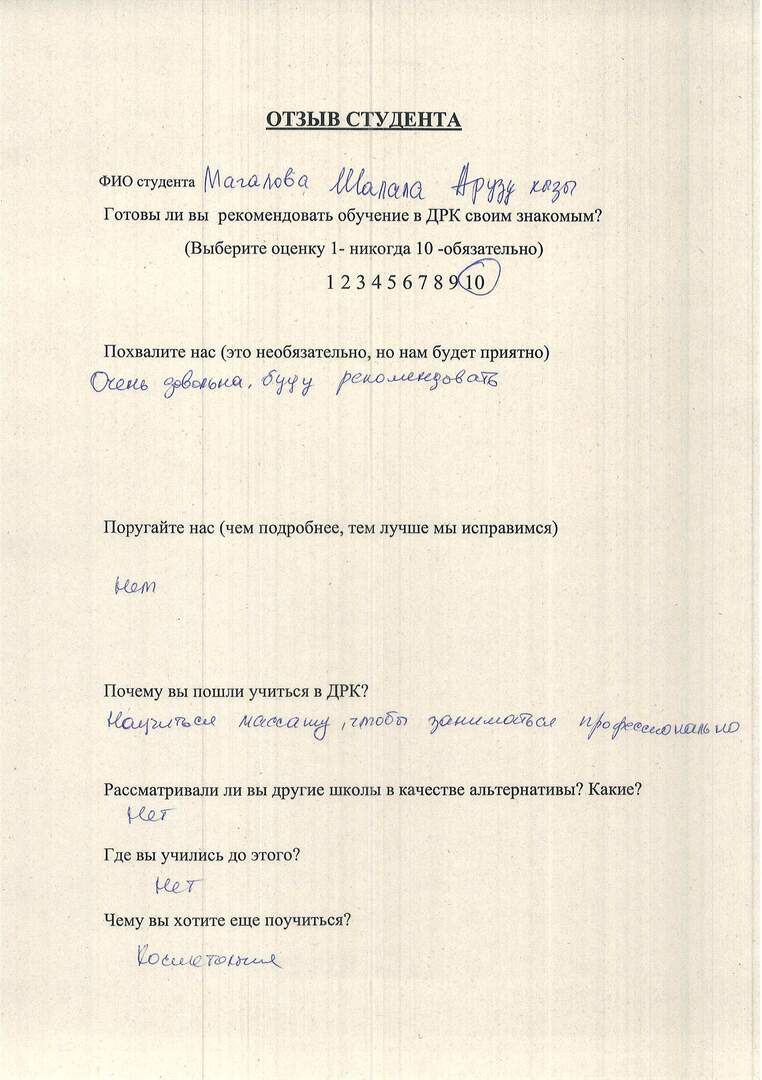 ОТЗЫВ СТУДЕНТА
ФИО студента Магалова Шалала Арузу кызы
Готовы ли вы рекомендовать обучение в ДРК своим знакомым?
(Выберите оценку 1- никогда 10 -обязательно)
1 2 3 4 5 6 7 8 9 10
Похвалите нас (это необязательно, но нам будет приятно)
Очень довольна, буду рекомендовать
Поругайте нас (чем подробнее, тем лучше мы исправимся)
Нет
Почему вы пошли учиться в ДРК?
Научиться массажу, чтобы заниматься профессионально
Рассматривали ли вы другие школы в качестве альтернативы? Какие?
Нет
Где вы учились до этого?
Нет
Чему вы хотите еще поучиться?